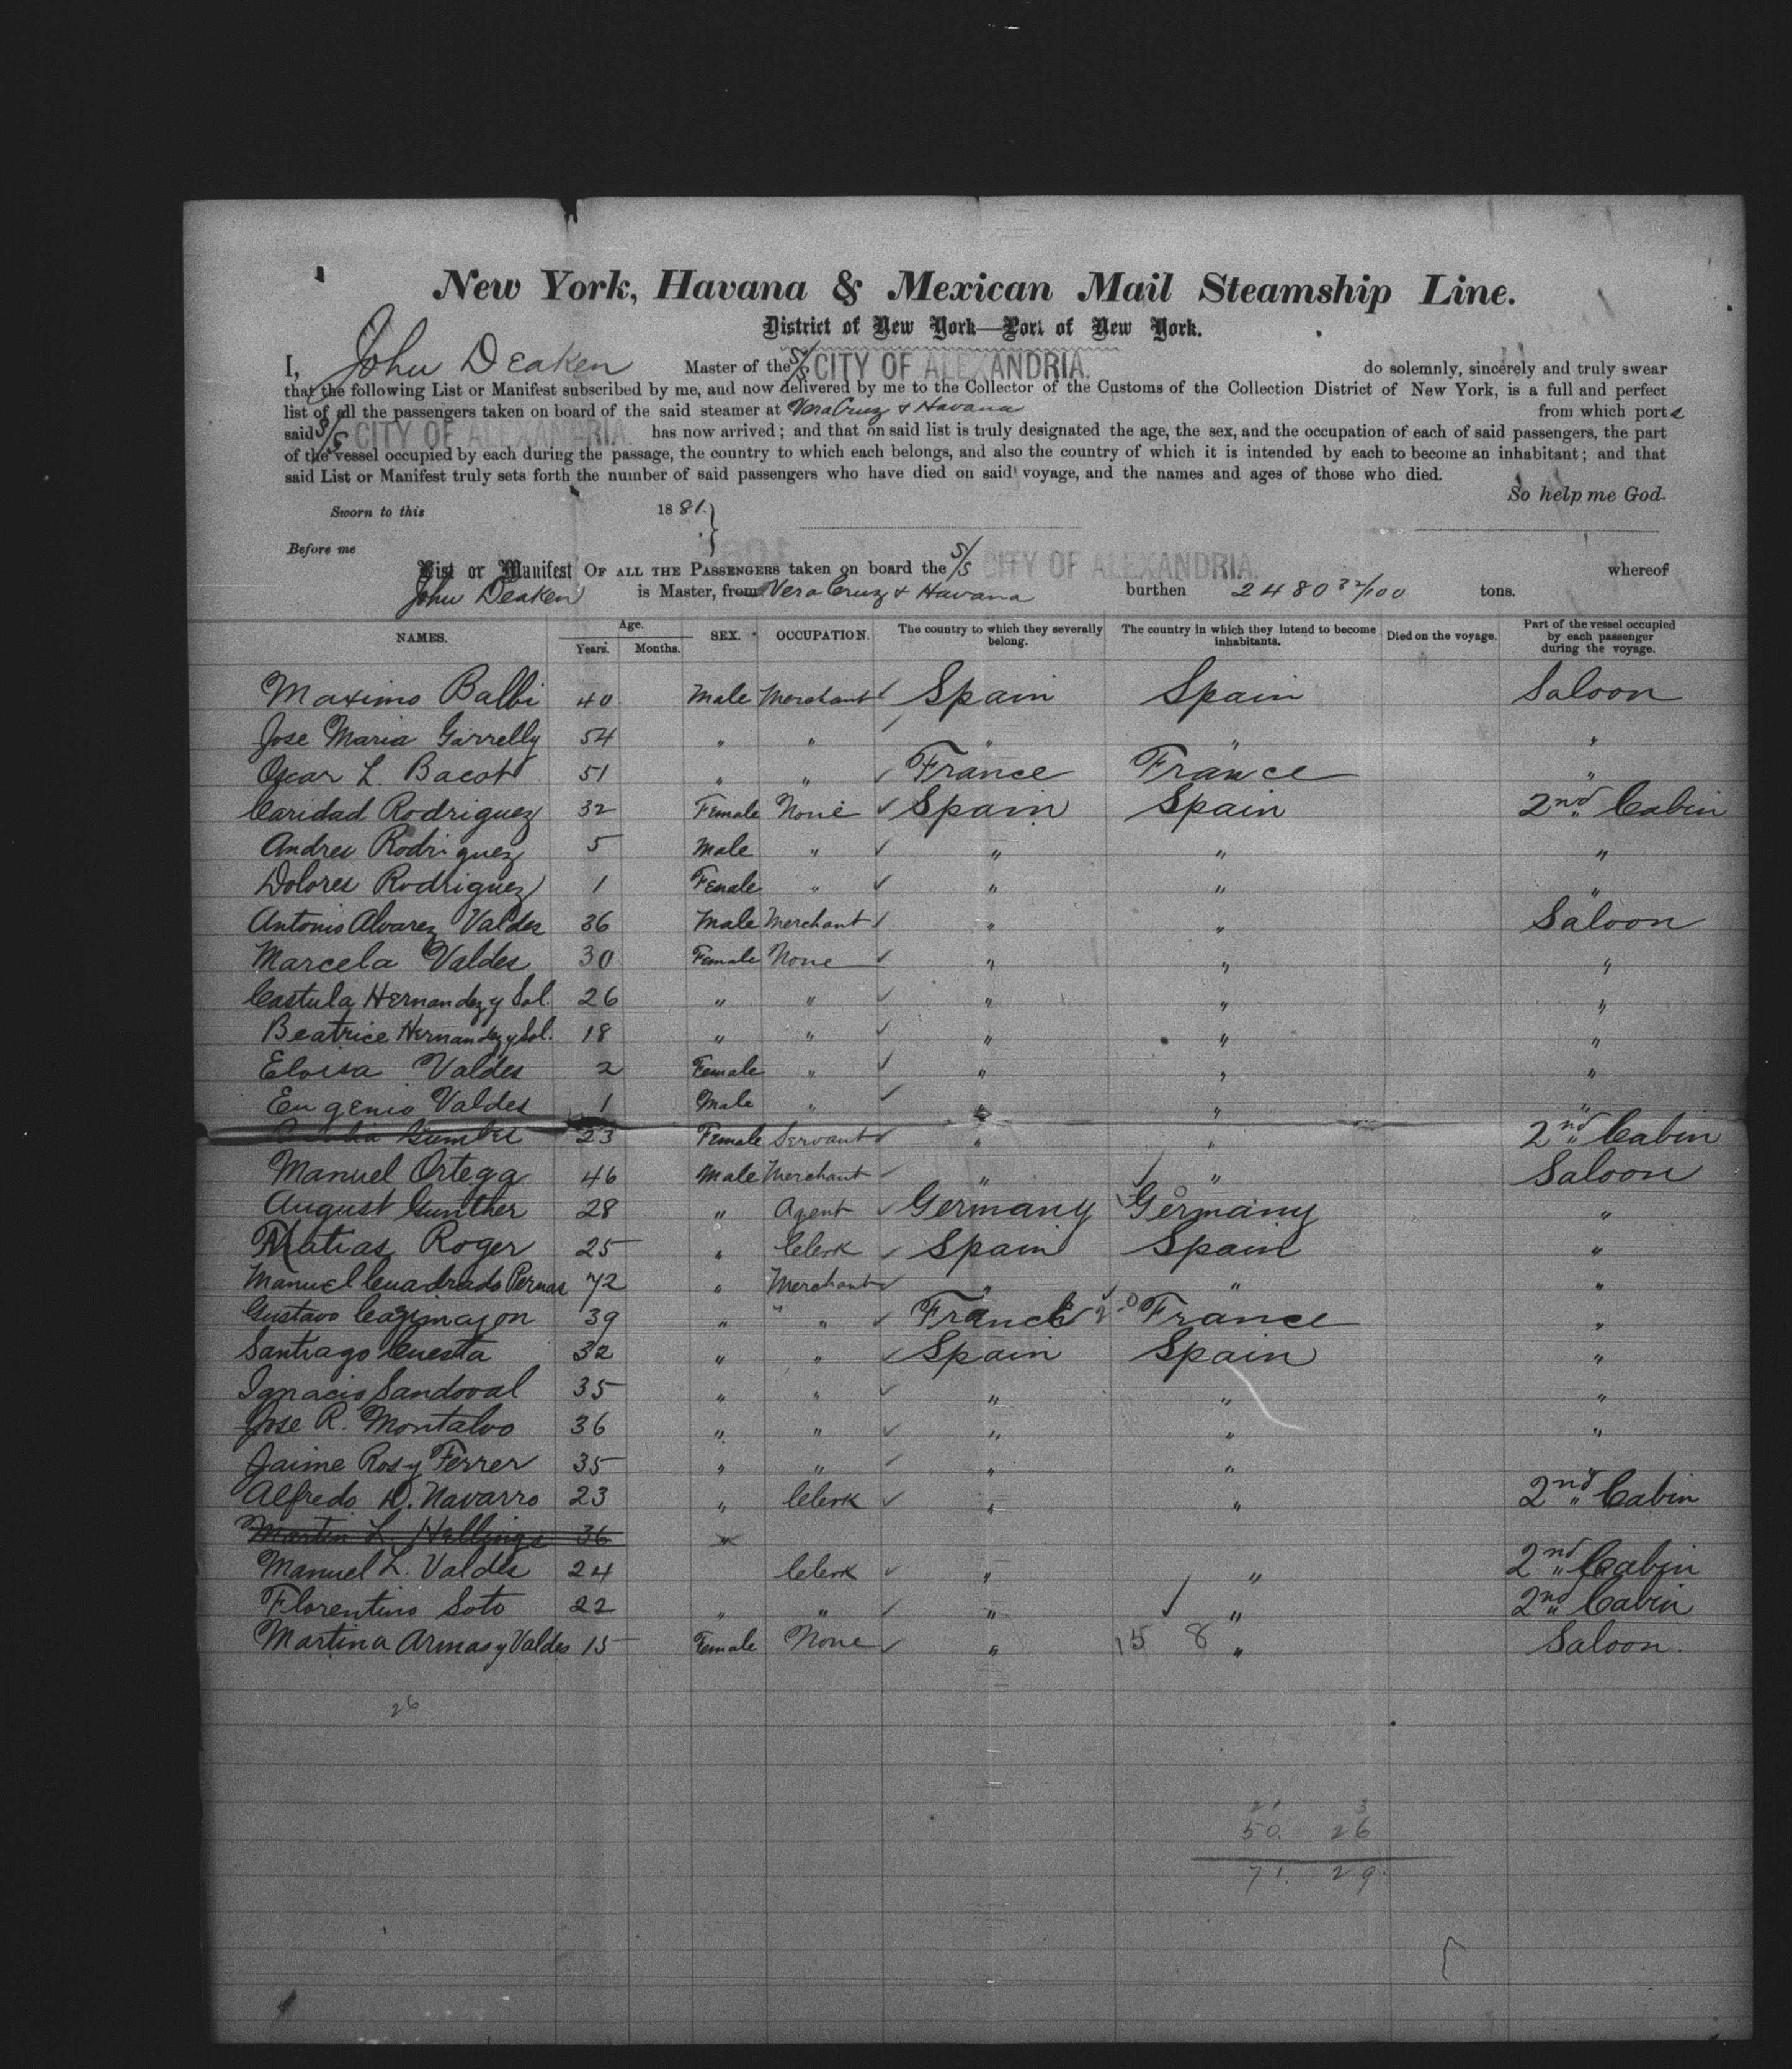 New York, Havana & Mexican Mail Steamship Line.
District of New York—Port of New York.
I, John Deaken Master of the S/S CITY OF ALEXANDRIA. do solemnly, sincerely and truly swear
that the following List or Manifest subscribed by me, and now delivered by me to the Collector of the Customs of the Collection District of New York, is a full and perfect
list of all the passengers taken on board of the said steamer at Vera Cruz & Havana from which ports
said S/S CITY OF ALEXANDRIA. has now arrived; and that on said list is truly designated the age, the sex, and the occupation of each of said passengers, the part
of the vessel occupied by each during the passage, the country to which each belongs, and also the country of which it is intended by each to become an inhabitant; and that
said List or Manifest truly sets forth the number of said passengers who have died on said voyage, and the names and ages of those who died.
So help me God.
Sworn to this 1881.
Before me
List or Manifest OF ALL THE PASSENGERS taken on board the S/S CITY OF ALEXANDRIA. whereof
John Deaken is Master, from Vera Cruz & Havana burthen 2480 32/100 tons.
NAMES. Age. Years. Months. SEX. OCCUPATION. The country to which they severally belong. The country in which they intend to become inhabitants. Died on the voyage. Part of the vessel occupied by each passenger during the voyage.
Maximo Balbi 40 Male Merchant ✓ Spain Spain Saloon
Jose Maria Girrelly 54 " " " " "
Oscar L. Bacot 51 " " ✓ France France "
Caridad Rodriguez 32 Female None ✓ Spain Spain 2nd Cabin
Andres Rodriguez 5 Male " ✓ " " "
Dolores Rodriguez 1 Female " ✓ " " "
Antonio Alvarez Valdes 36 Male Merchant ✓ " " Saloon
Marcela Valdes 30 Female None ✓ " " "
Castula Hernandez y Sol. 26 " " ✓ " " "
Beatrice Hernandez y Sol. 18 " " ✓ " " "
Eloisa Valdes 2 Female " ✓ " " "
Eugenio Valdes 1 Male " ✓ " " "
23 Female Servant ✓ " " 2nd Cabin
Manuel Ortega 46 Male Merchant ✓ " " Saloon
August Gunther 28 " Agent ✓ Germany Germany "
Matias Roger 25 " Clerk ✓ Spain Spain "
Manuel Cuadrado Pernas 72 " Merchant ✓ " " "
Gustavo Cazimajon 39 " " ✓ France France "
Santiago Cuesta 32 " " ✓ Spain Spain "
Ignacio Sandoval 35 " " ✓ " " "
Jose R. Montalvo 36 " " ✓ " " "
Jaime Ros y Ferrer 35 " " ✓ " " "
Alfredo D. Navarro 23 " Clerk ✓ " " 2nd Cabin
Martin L. Hellings 36 "
Manuel L. Valdes 24 Clerk ✓ " " 2nd Cabin
Florentino Soto 22 " " ✓ " " 2nd Cabin
Martina Armas y Valdes 15 Female None ✓ " 15 8 " Saloon.
26
21 3
50. 26
71. 29.